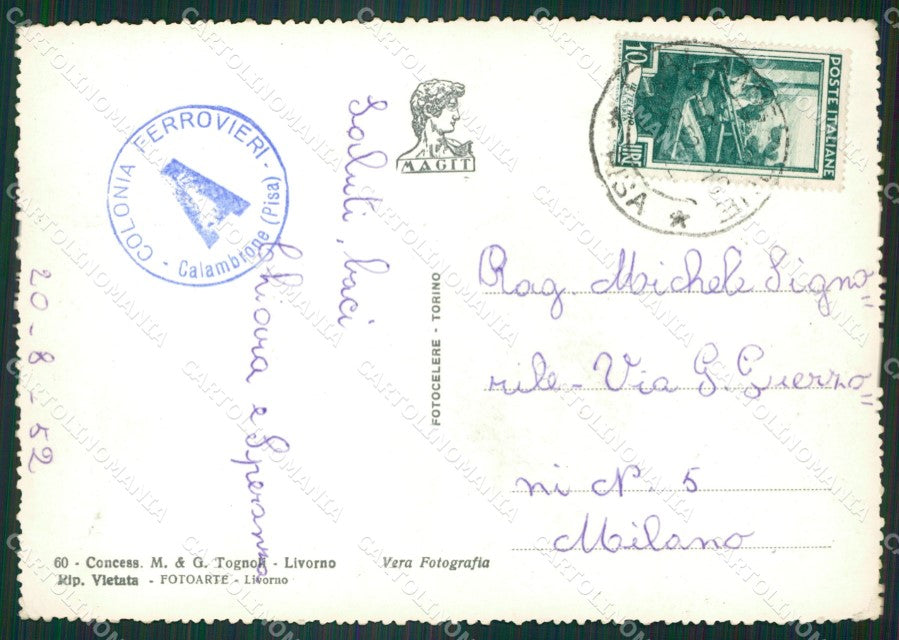 COLONIA FERROVIERI - 
- Calambrone (Pisa)
20-8-52
Saluti, baci
Speranza
MAGIT
FOTOCELERE - TORINO
POSTE ITALIANE
10
LIRE
PISA
Rag. Michele Signo=
rile - Via G. Guerzo=
ni N. 5
Milano
60 - Concess. M. & G. Tognoli - Livorno
Rip. Vietata - FOTOARTE - Livorno
Vera Fotografia
CARTOLINOMANIA